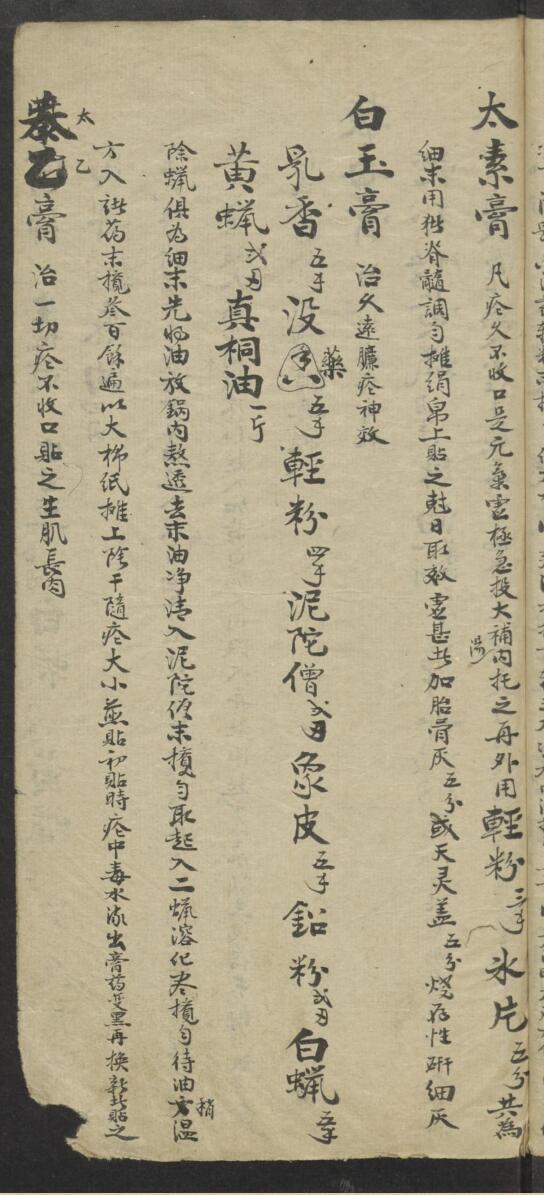 太素膏 凡疮久不收口是元氣虚極急投大補湯内托之再外用輕粉三錢氷片五分共為
细末用猪脊髓調匀摊绢帛上貼之尅日取效虚甚者加胎骨灰五分或天灵盖五分烧存性研细灰
白玉膏 治久遠臁疮神效
乳香五錢没藥五錢輕粉四錢泥陀僧弍両象皮五錢鉛粉弍両白蝋五錢
黄蝋弍両真桐油一斤
除蝋俱為细末先将油放鍋内熬透去末油净清入泥陀僧末攪匀取起入二蝋溶化再攪匀待油稍温
方入諸药末攪叁百餘遍以大棉纸摊上陰干隨疮大小剪貼初貼時疮中毒水流出膏药变黑再换新者貼之
太乙膏 治一切疮不收口貼之生肌長肉